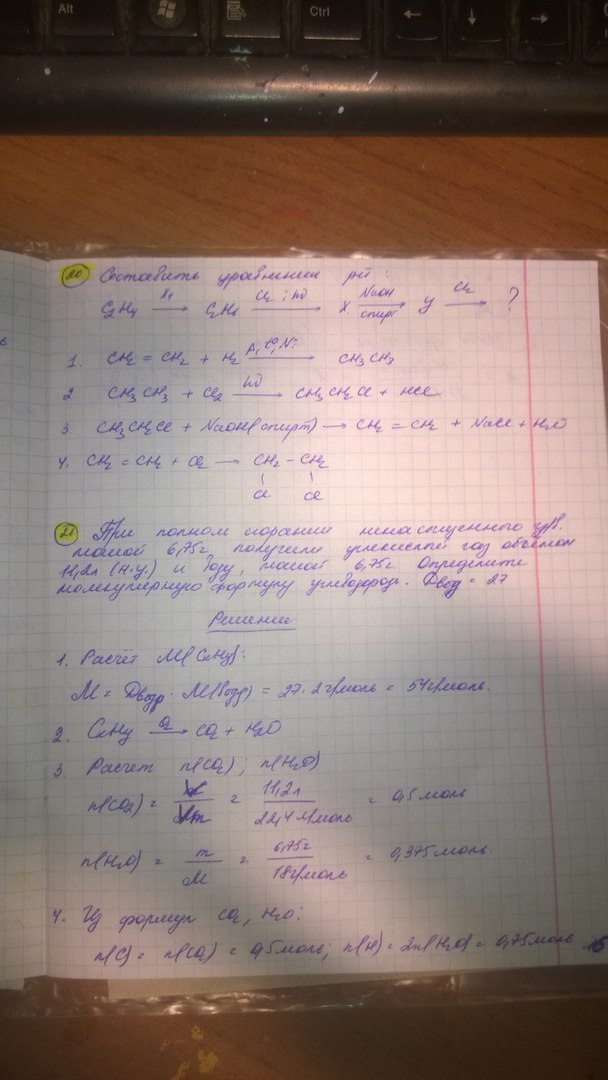 Alt
Ctrl
20 Составить уравнения р-й:
C2H4 —H2→ C2H6 —Cl2; hν→ X —NaOH спирт→ Y —Cl2→ ?
1. CH2 = CH2 + H2 → CH3CH3
2 CH3CH3 + Cl2 —hν→ CH3CH2Cl + HCl
3 CH3CH2Cl + NaOH(спирт) → CH2 = CH2 + NaCl + H2O
4. CH2 = CH2 + Cl2 → CH2 – CH2
Cl Cl
21 При полном сгорании ненасыщенного у/в.
массой 6,75г, получили углекислый газ объёмом
11,2л (н.у.) и воду, массой 6,75г. Определите
молекулярную формулу углеводорода. Dвод = 27
Решение
1. Расчёт M(CxHy):
M = Dводр · M(водр) = 27 · 2г/моль = 54г/моль.
2. CxHy —O2→ CO2 + H2O
3. Расчет n(CO2); n(H2O)
n(CO2) = V/Vm = 11,2л/22,4л/моль = 0,5моль
n(H2O) = m/M = 6,75г/18г/моль = 0,375моль.
4. Из формул CO2, H2O:
n(C) = n(CO2) = 0,5моль; n(H) = 2n(H2O) = 0,75моль